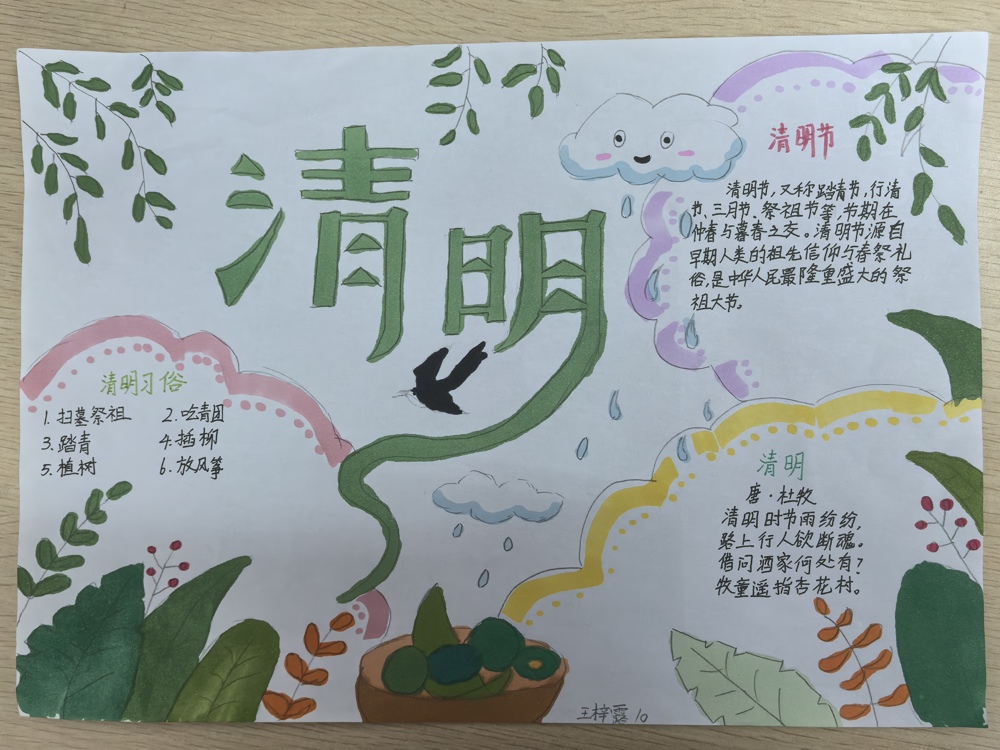 清明
清明节
清明节,又称踏青节,行清
节、三月节、祭祖节等,节期在
仲春与暮春之交。清明节源自
早期人类的祖先信仰与春祭礼
俗,是中华人民最隆重盛大的祭
祖大节。
清明习俗
1. 扫墓祭祖 2. 吃青团
3. 踏青 4. 插柳
5. 植树 6. 放风筝
清明
唐·杜牧
清明时节雨纷纷,
路上行人欲断魂。
借问酒家何处有?
牧童遥指杏花村。
王梓露 10